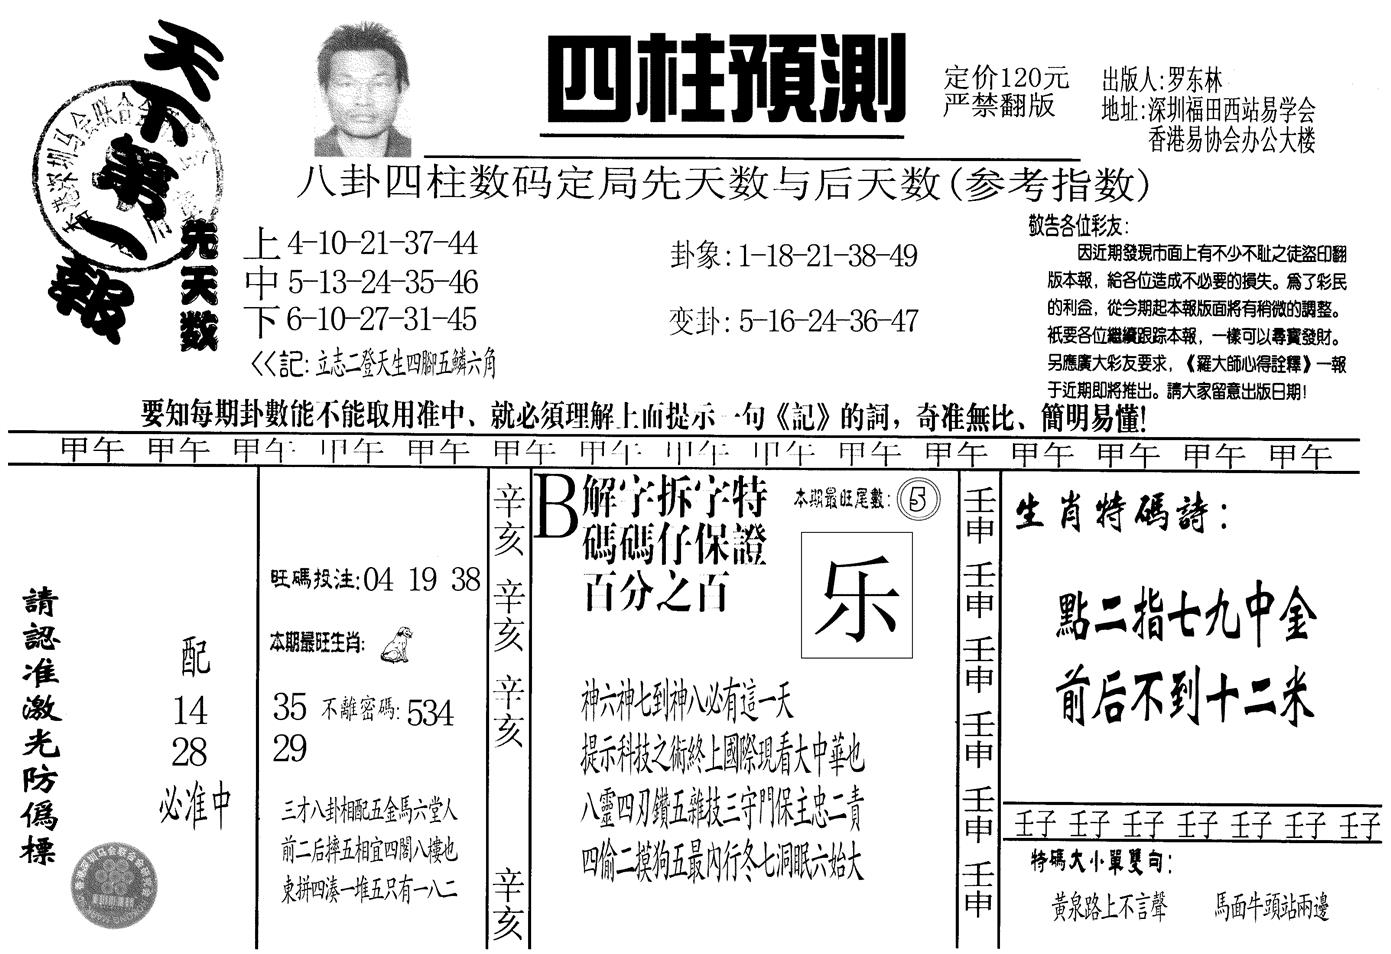 天下第一報
四柱預測
定价120元
严禁翻版
出版人:罗东林
地址:深圳福田西站易学会
香港易协会办公大楼
八卦四柱数码定局先天数与后天数(参考指数)
先天数
上 4-10-21-37-44
中 5-13-24-35-46
下 6-10-27-31-45
<<記: 立志二登天生四腳五鱗六角
卦象: 1-18-21-38-49
变卦: 5-16-24-36-47
敬告各位彩友:
因近期發現市面上有不少不耻之徒盜印翻
版本報，給各位造成不必要的損失。爲了彩民
的利益，從今期起本報版面將有稍微的調整。
衹要各位繼續跟踪本報，一樣可以尋寶發財。
另應廣大彩友要求，《羅大師心得詮釋》一報
于近期即將推出。請大家留意出版日期!
要知每期卦數能不能取用准中、就必須理解上面提示一句《記》的詞，奇准無比、簡明易懂!
甲午 甲午 甲午 甲午 甲午 甲午 甲午 甲午 甲午 甲午 甲午 甲午 甲午 甲午 甲午
請認准激光防僞標
配
14
28
必准中
旺碼投注:04 19 38
本期最旺生肖:
35 不離密碼: 534
29
三才八卦相配五金馬六堂人
前二后摔五相宜四閣八樓也
東拼四湊一堆五只有一八二
辛亥 辛亥 辛亥 辛亥
B 解字拆字特
碼碼仔保證
百分之百
本期最旺尾數: 5
乐
神六神七到神八必有這一天
提示科技之術終上國際現看大中華也
八靈四刃鑽五雜技三守門保主忠二責
四偷二摸狗五最內行冬七洞眠六始大
壬申 壬申 壬申 壬申 壬申 壬申
生肖特碼詩:
點二指七九中金
前后不到十二米
壬子 壬子 壬子 壬子 壬子 壬子 壬子
特碼大小單雙句:
黃泉路上不言聲 馬面牛頭站兩邊